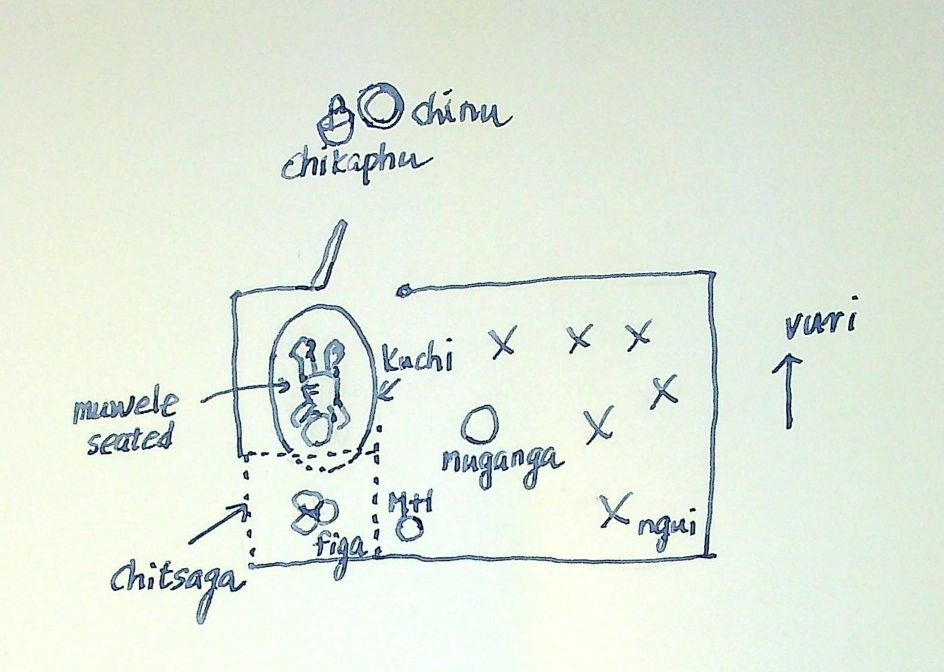 chinu
chikaphu
vuri
Kuchi
muwele
seated
muganga
M+H
ngui
figa
Chitsaga